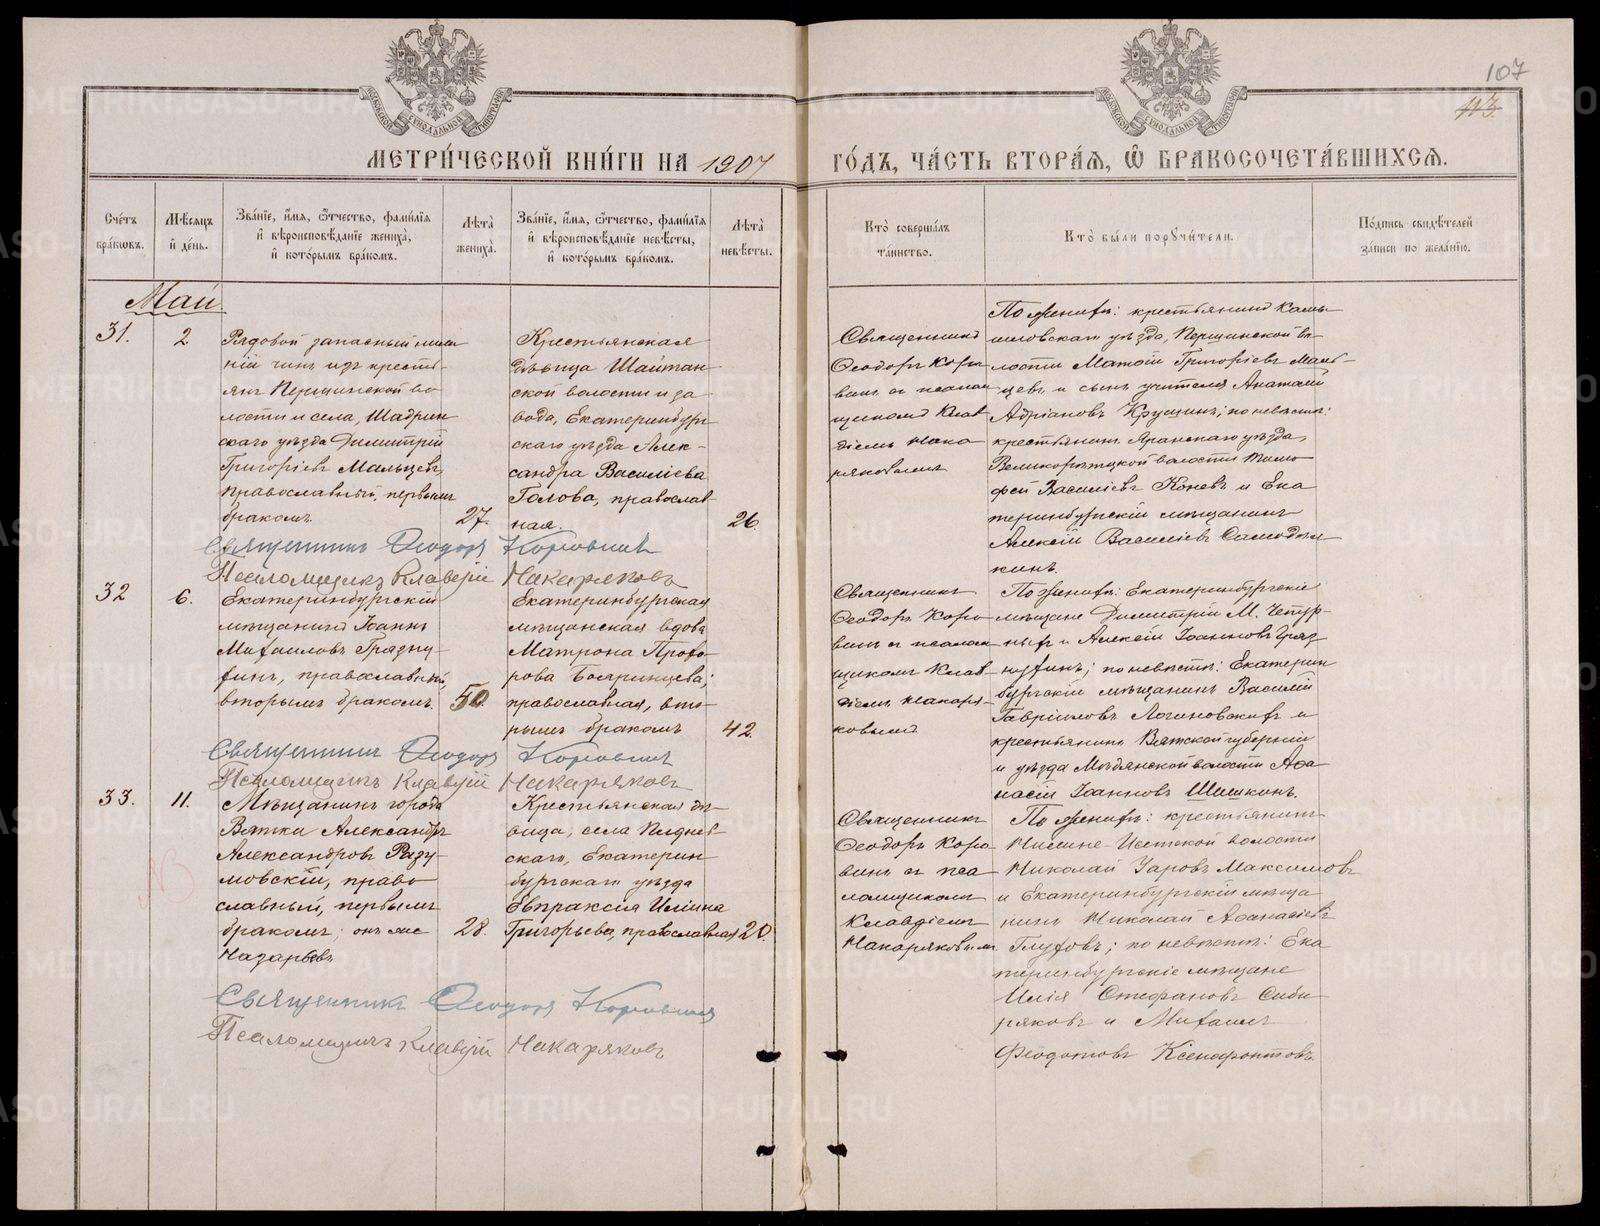 107
113.
МЕТРИ́ЧЕСКОЙ КНИ́ГИ НА 1907 ГО́ДЪ, ЧА́СТЬ ВТОРА́Я, Ѽ БРАКОСОЧЕТА́ВШИХСЯ.
Сче́тъ бра́ковъ.
Мѣ́сяцъ и҆ де́нь.
Зва́нїе, и҆́мя, ѻ҆́тчество, фами́лїя
и҆ вѣроисповѣ́данїе жениха̀,
и҆ кото́рымъ бра́комъ.
Лѣта̀ жениха̀.
Зва́нїе, и҆́мя, ѻ҆́тчество, фами́лїя
и҆ вѣроисповѣ́данїе невѣ́сты,
и҆ кото́рымъ бра́комъ.
Лѣта̀ невѣ́сты.
Кто̀ соверша́лъ
та́инство.
Кто̀ бы́ли порꙋчи́тели.
По́дпись свидѣ́телей
за́писи по жела́нїю.
Май
31.
2
Рядовой запасный ниж
ній чинъ изъ кресть
янъ Першинской во
лости и села, Шадрин
скаго уѣзда Димитрій
Григоріевъ Мальцевъ,
православный, первымъ
бракомъ.
27.
Крестьянская
дѣвица Шайтан
ской волости и за
вода, Екатеринбург
скаго уѣзда Алек-
сандра Василіева
Голова, православ
ная.
26
Священникъ
Ѳеодоръ Коро
винъ съ псалом
щикомъ Клав
діемъ Нака
ряковымъ
По женихѣ: крестьянинъ Камы
шловскаго уѣзда, Першинской во
лости Матѳій Григоріевъ Маль-
цевъ и сынъ учителя Анатолій
Адріановъ Крущинъ; по невѣстѣ:
крестьянинъ Яранскаго уѣзда,
Великорѣцкой волости Тимо
фей Василіевъ Коневъ и Ека
теринбургскій мѣщанинъ
Алексій Василіевъ Самодѣл
кинъ.
Священникъ Ѳеодоръ Коровинъ
Псаломщикъ Клавдій Накаряковъ
32
6.
Екатеринбургскій
мѣщанинъ Іоаннъ
Михаиловъ Грязну-
хинъ, православный,
вторымъ бракомъ.
50
Екатеринбургская
мѣщанская вдова
Матрона Прохо-
рова Бояринцева;
православная, вто-
рымъ бракомъ
42.
Священникъ
Ѳеодоръ Коро
винъ съ псалом
щикомъ Клав
діемъ Накаря-
ковымъ
По женихѣ: Екатеринбургскіе
мѣщане Димитрій М. Четур-
ныхъ и Алексій Іоанновъ Гряз
нухинъ; по невѣстѣ: Екатерин
бургскій мѣщанинъ Василій
Гавріиловъ Логиновскихъ и
крестьянинъ Вятской губерніи
и уѣзда Мѣдянской волости Аѳа
насій Іоанновъ Шишкинъ.
Священникъ Ѳеодоръ Коровинъ
Псаломщикъ Клавдій Накаряковъ
33.
11.
Мѣщанинъ города
Вятки Александръ
Александровъ Разу-
мовскій, право
славный, первымъ
бракомъ; онъ же
Назарьевъ
28.
Крестьянская дѣ-
вица, села
скаго, Екатерин
бургскаго уѣзда
Евпраксія Иліина
Григорьева, православная
20.
Священникъ
Ѳеодоръ Коро
винъ съ пса
ломщикомъ
Клавдіемъ
Накаряковымъ
По женихѣ: крестьянинъ
Нижне-Исетской волости
Николай Уаровъ Максимовъ
и Екатеринбургскій мѣща
нинъ Николай Аѳанасіевъ
Глуховъ; по невѣстѣ: Ека
теринбургскіе мѣщане
Илія Стефановъ Сиби
ряковъ и Михаилъ
Ѳеодотовъ Ксенофонтовъ.
Священникъ Ѳеодоръ Коровинъ
Псаломщикъ Клавдій Накаряковъ
METRIKI.GASO-URAL.RU